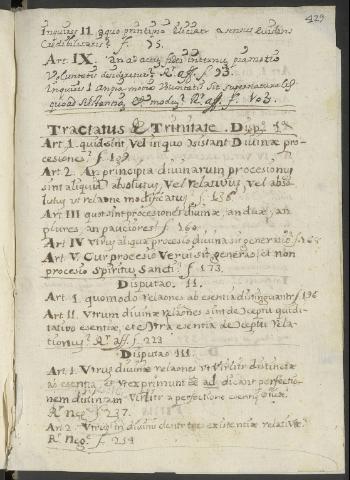 429
Inquires 11. a quo principio eliciatur assensus evidens
Credibilitatis? f. 75.
Art. IX. an ad actus fidei internus pia motio
Voluntatis desideretur? Rr. aff. f. 93.
Inquires 1 An pia motio Voluntatis sit supernaturalis
quoad substantiam, et modum? Rr. aff. f. 103.
Tractatus de Trinitate. Disp. 1ª
Art. 1. quid sint, vel in quo Consistant Divinæ pro-
cesiones? f. 129
Art. 2. An principia divinarum procesionum
sint aliquid absolutum, Vel relativum, Vel abso-
lutum ut relatione modificatum? f. 138
Art. III quot sint procesiones divinæ, an duæ, an
plures, an pauciores? f. 160
Art. IV Utrum aliqua procesio divina sit generatio?
Art. V. Cur procesio Verbi sit generatio, et non
procesio Spiritus Sancti? f. 173.
Disputatio. 11.
Art. 1. quomodo relationes ab esentia distinguantur f. 196
Art. 11. Utrum divinæ relationes sint de Conceptu quidi-
tativo esentiæ, et e contra esentia de Conceptu rela-
tionum? Rr. aff. f. 223
Disputatio III.
Art. 1. Utrum divinæ relationes ut Virtualiter distinctæ
ab esentia, et ut exprimunt esse ad, dicant perfectio-
nem divinam Virtualiter a perfectione esentiæ
Rr. neg. f. 237.
Art. 2. Utrum in divinis dentur tres existentiæ relativæ?
Rr. neg. f. 254